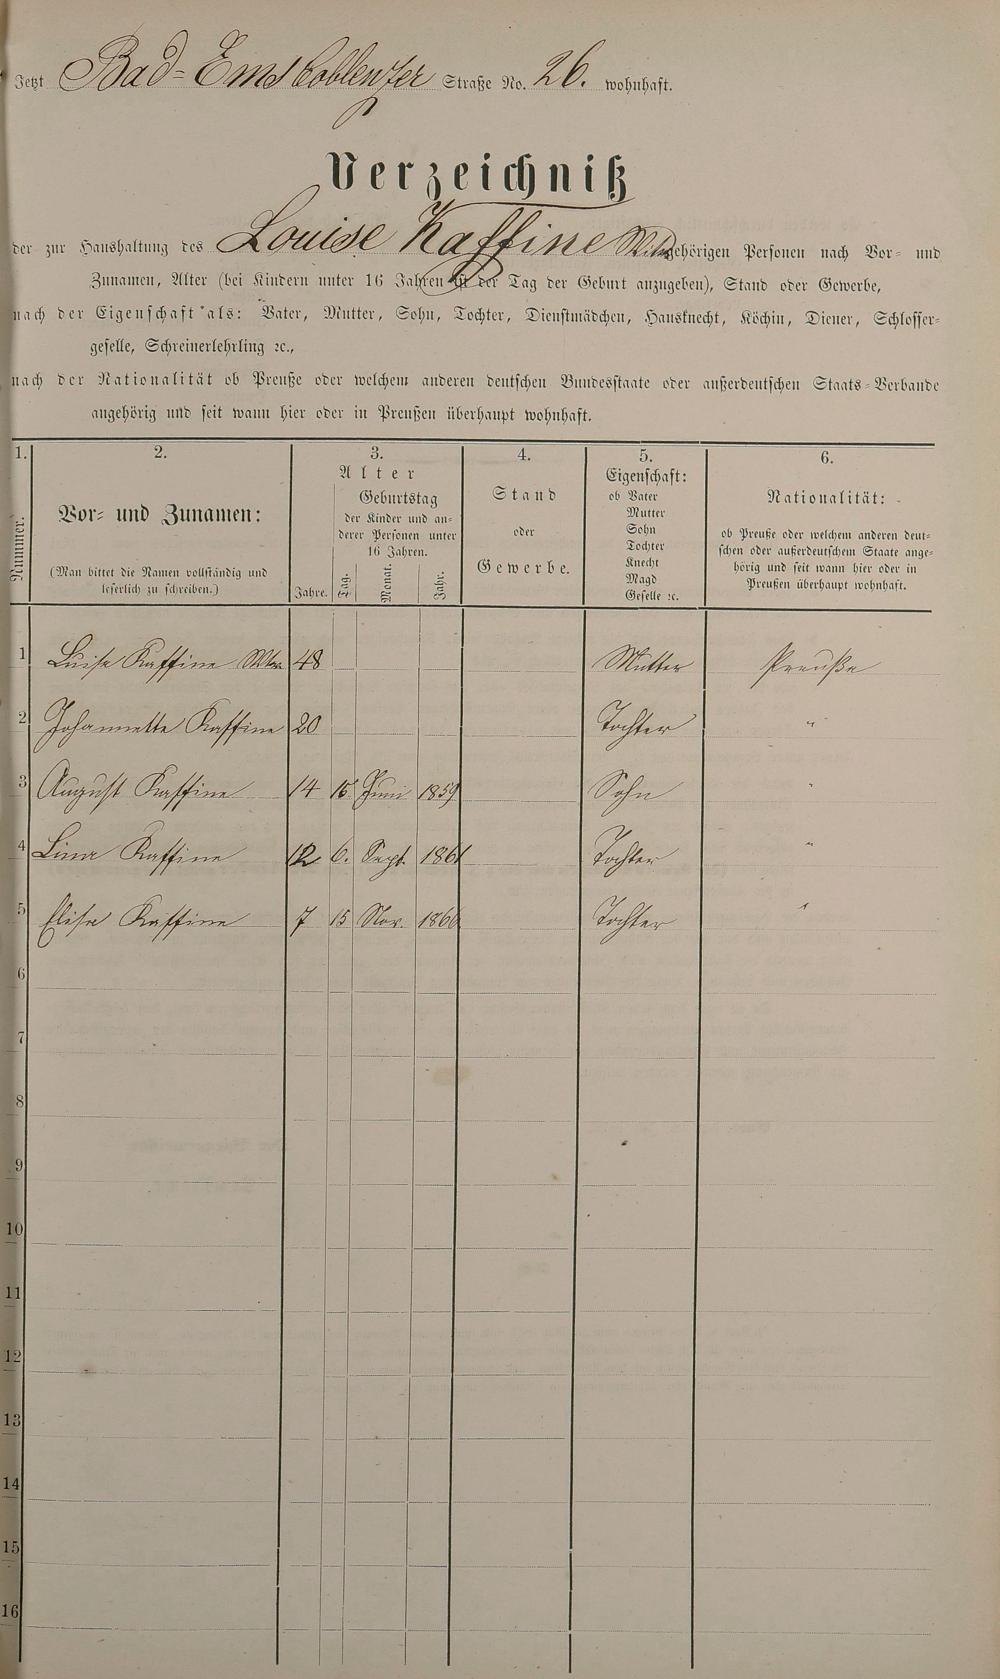 Jetzt Bad-Ems Coblenzer Straße No. 26. wohnhaft.
Verzeichniß
der zur Haushaltung des Louise Kaffine Witwe gehörigen Personen nach Vor- und
Zunamen, Alter (bei Kindern unter 16 Jahren ist der Tag der Geburt anzugeben), Stand oder Gewerbe,
nach der Eigenschaft als: Vater, Mutter, Sohn, Tochter, Dienstmädchen, Hausknecht, Köchin, Diener, Schlosser-
geselle, Schreinerlehrling ꝛc.,
nach der Nationalität ob Preuße oder welchem anderen deutschen Bundesstaate oder außerdeutschen Staats-Verbande
angehörig und seit wann hier oder in Preußen überhaupt wohnhaft.
1. 2. 3. 4. 5. 6.
Nummer.
Vor- und Zunamen:
(Man bittet die Namen vollständig und
leserlich zu schreiben.)
Alter
Geburtstag
der Kinder und an-
derer Personen unter
16 Jahren.
Jahre. Tag. Monat. Jahr.
Stand
oder
Gewerbe.
Eigenschaft:
ob Vater
Mutter
Sohn
Tochter
Knecht
Magd
Geselle ꝛc.
Nationalität:
ob Preuße oder welchem anderen deut-
schen oder außerdeutschem Staate ange-
hörig und seit wann hier oder in
Preußen überhaupt wohnhaft.
1 Luise Kaffine Wtw. 48 Mutter Preuße
2 Johannette Kaffine 20 Tochter "
3 August Kaffine 14 15 Juni 1859 Sohn "
4 Lina Kaffine 12 6. Sept. 1861 Tochter "
5 Elise Kaffine 7 15 Nov. 1866 Tochter "
6
7
8
9
10
11
12
13
14
15
16